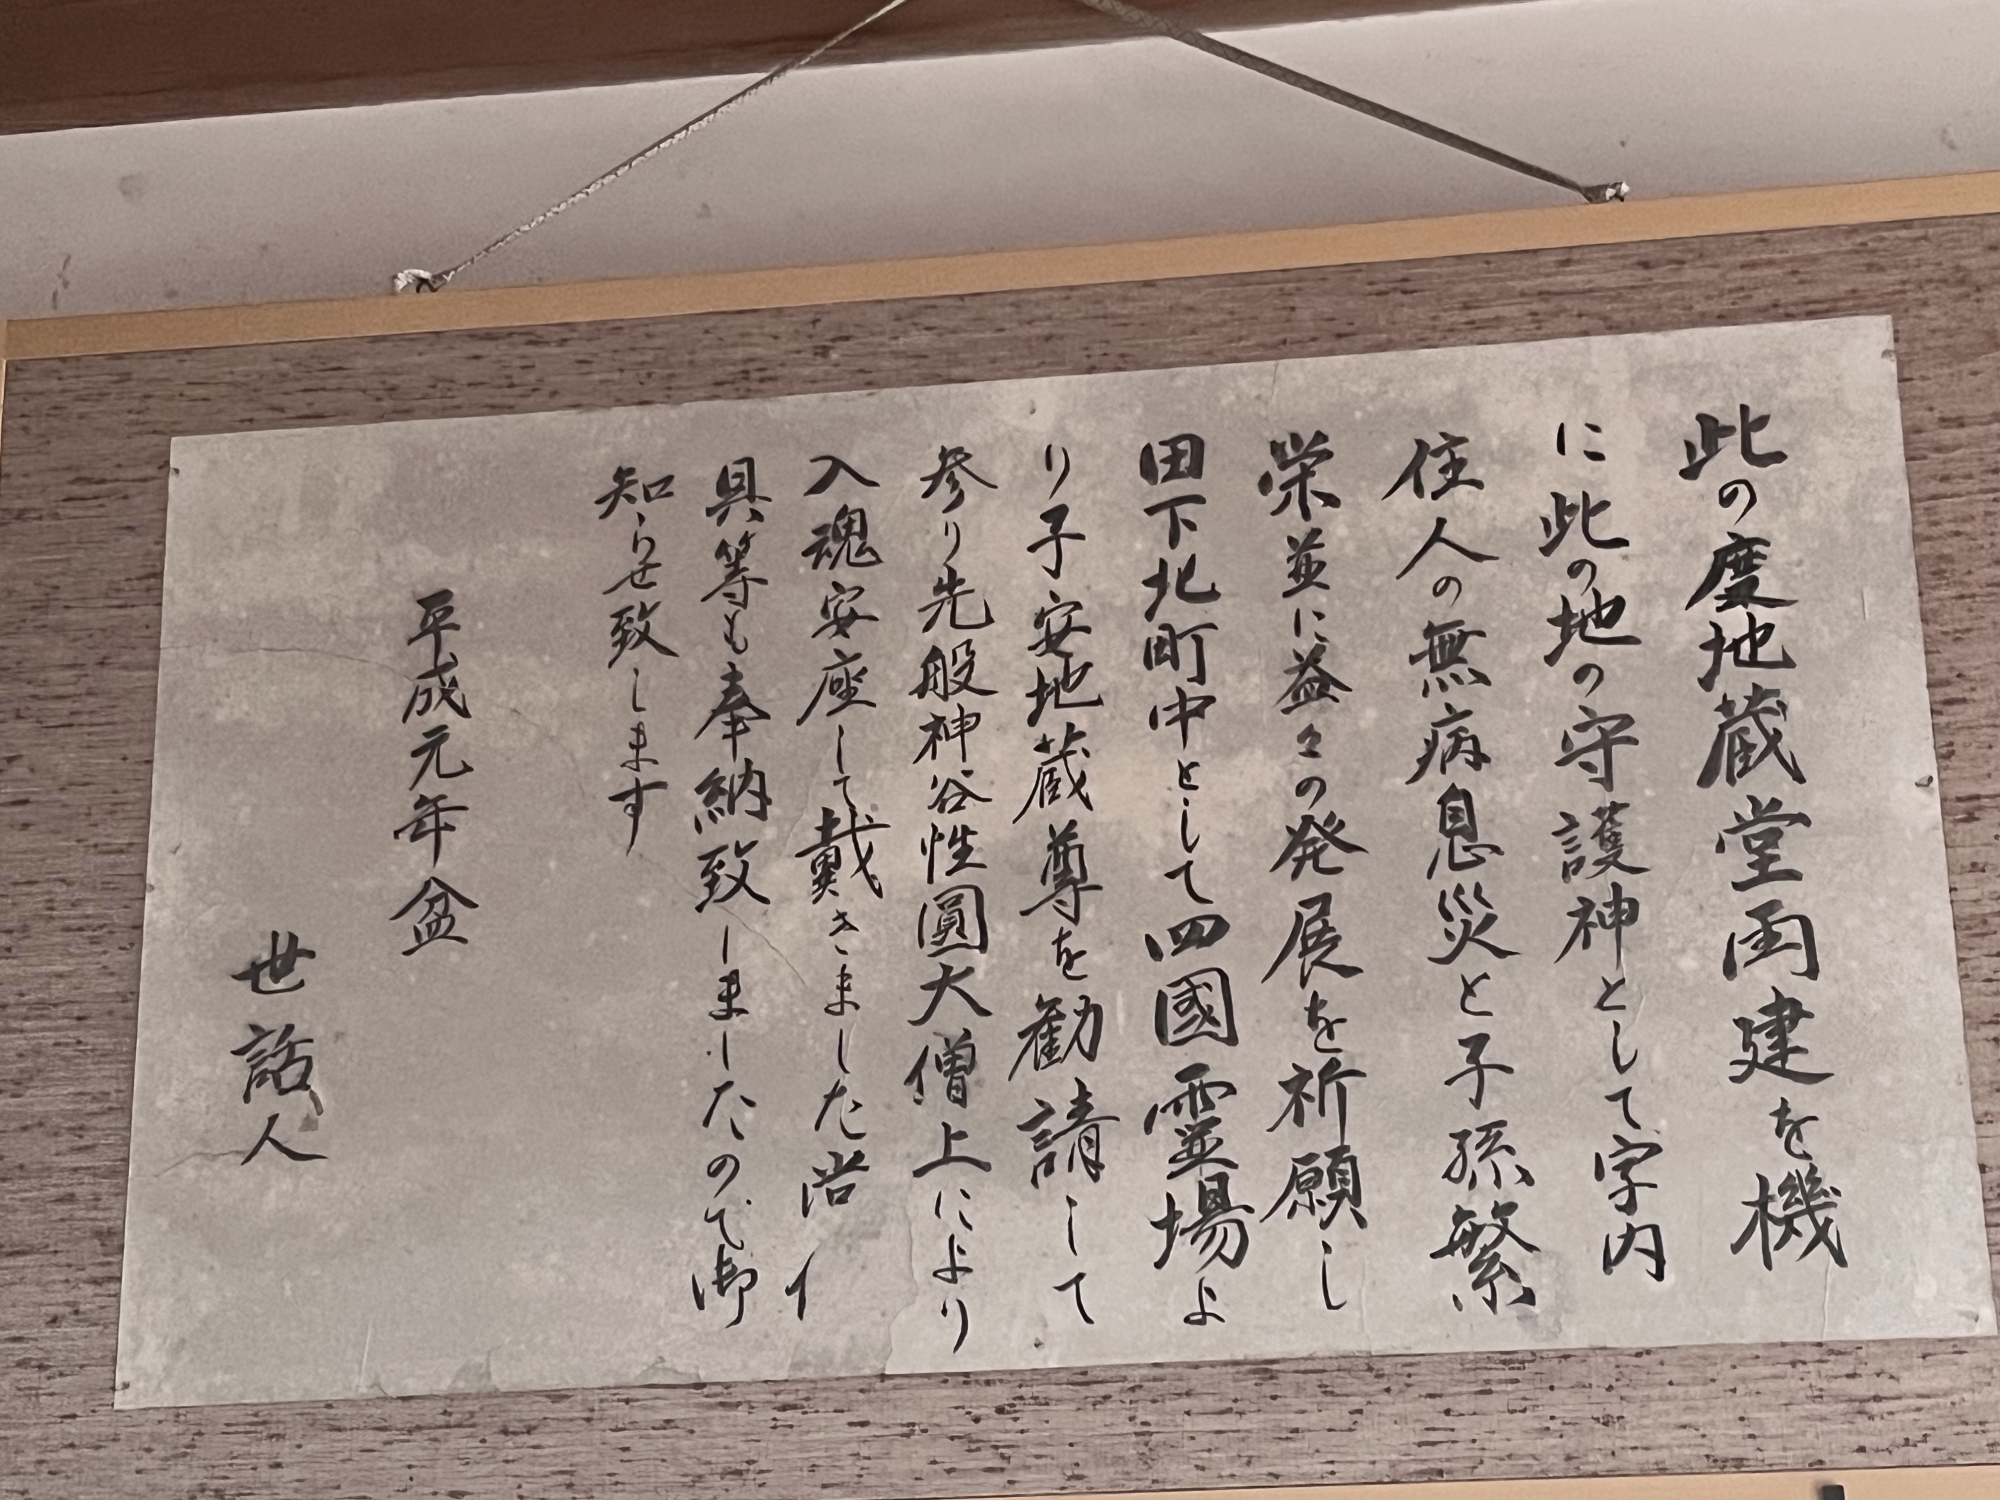 此の度地蔵堂再建を機
に此の地の守護神として字内
住人の無病息災と子孫繁
栄並に益々の発展を祈願し
田下北町中として四國霊場よ
り子安地蔵尊を勧請して
参り先般神谷性圓大僧上により
入魂安座して戴きました尚仏
具等も奉納致しましたので御
知らせ致します
平成元年盆
世話人